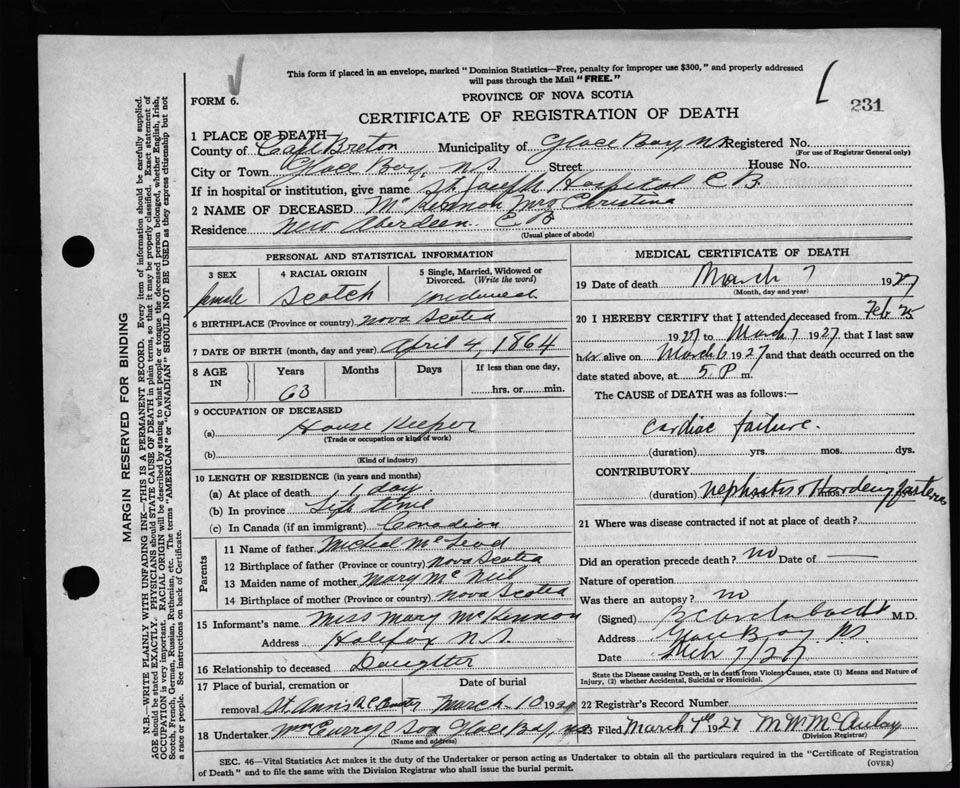 This form if placed in an envelope, marked "Dominion Statistics—Free, penalty for improper use $300," and properly addressed
will pass through the Mail "FREE."
FORM 6.
PROVINCE OF NOVA SCOTIA
231
CERTIFICATE OF REGISTRATION OF DEATH
1 PLACE OF DEATH
County of Cape Breton Municipality of Glace Bay N.S. Registered No.
(For use of Registrar General only)
City or Town Glace Bay, N.S. Street House No.
If in hospital or institution, give name St. Joseph Hospital C.B.
2 NAME OF DECEASED McKinnon Mrs Christina
Residence New Aberdeen C.B.
(Usual place of abode)
PERSONAL AND STATISTICAL INFORMATION
3 SEX 4 RACIAL ORIGIN 5 Single, Married, Widowed or
Divorced. (Write the word)
female Scotch widowed
6 BIRTHPLACE (Province or country) Nova Scotia
7 DATE OF BIRTH (month, day and year) April 4, 1864
8 AGE IN Years Months Days If less than one day,
63 hrs. or min.
9 OCCUPATION OF DECEASED
(a) House Keeper
(Trade or occupation or kind of work)
(b)
(Kind of industry)
10 LENGTH OF RESIDENCE (in years and months)
(a) At place of death 1 day
(b) In province Life time
(c) In Canada (if an immigrant) Canadian
Parents
11 Name of father Micheal McLeod
12 Birthplace of father (Province or country) Nova Scotia
13 Maiden name of mother Mary McNeil
14 Birthplace of mother (Province or country) Nova Scotia
15 Informant's name Miss Mary McKinnon
Address Halifax N.S.
16 Relationship to deceased Daughter
17 Place of burial, cremation or Date of burial
removal St Anns March 10 192
18 Undertaker Wm Curry & Son Glace Bay, N.S.
(Name and address)
MEDICAL CERTIFICATE OF DEATH
19 Date of death March 7 1927
(Month, day and year)
20 I HEREBY CERTIFY that I attended deceased from Feb 25
1927 to March 7 1927 that I last saw
her alive on March 6 1927 and that death occurred on the
date stated above, at 5. P m.
The CAUSE of DEATH was as follows:—
Cardiac failure.
(duration) yrs. mos. dys.
CONTRIBUTORY
(duration)
21 Where was disease contracted if not at place of death?
Did an operation precede death? no Date of
Nature of operation
Was there an autopsy? no
(Signed) M.D.
Address Glace Bay NS
Date Mch 7/27
State the Disease causing Death, or in death from Violent Causes, state (1) Means and Nature of
Injury, (2) whether Accidental, Suicidal or Homicidal.
22 Registrar's Record Number
23 Filed March 7th 1927 M W McAulay
(Division Registrar)
SEC. 46—Vital Statistics Act makes it the duty of the Undertaker or person acting as Undertaker to obtain all the particulars required in the "Certificate of Registration
of Death" and to file the same with the Division Registrar who shall issue the burial permit.
(OVER)
MARGIN RESERVED FOR BINDING
N.B.—WRITE PLAINLY WITH UNFADING INK—THIS IS A PERMANENT RECORD. Every item of information should be carefully supplied.
AGE should be stated EXACTLY. PHYSICIANS should STATE CAUSE OF DEATH in plain terms, so that it may be properly classified. Exact statement of
OCCUPATION is very important. RACIAL ORIGIN will be described by stating to what people or tongue the deceased person belonged, whether English, Irish,
Scotch, French, German, Russian, Ruthenian, etc. The terms "AMERICAN" or "CANADIAN" SHOULD NOT BE USED as they express citizenship but not
a race or people. See instructions on back of Certificate.